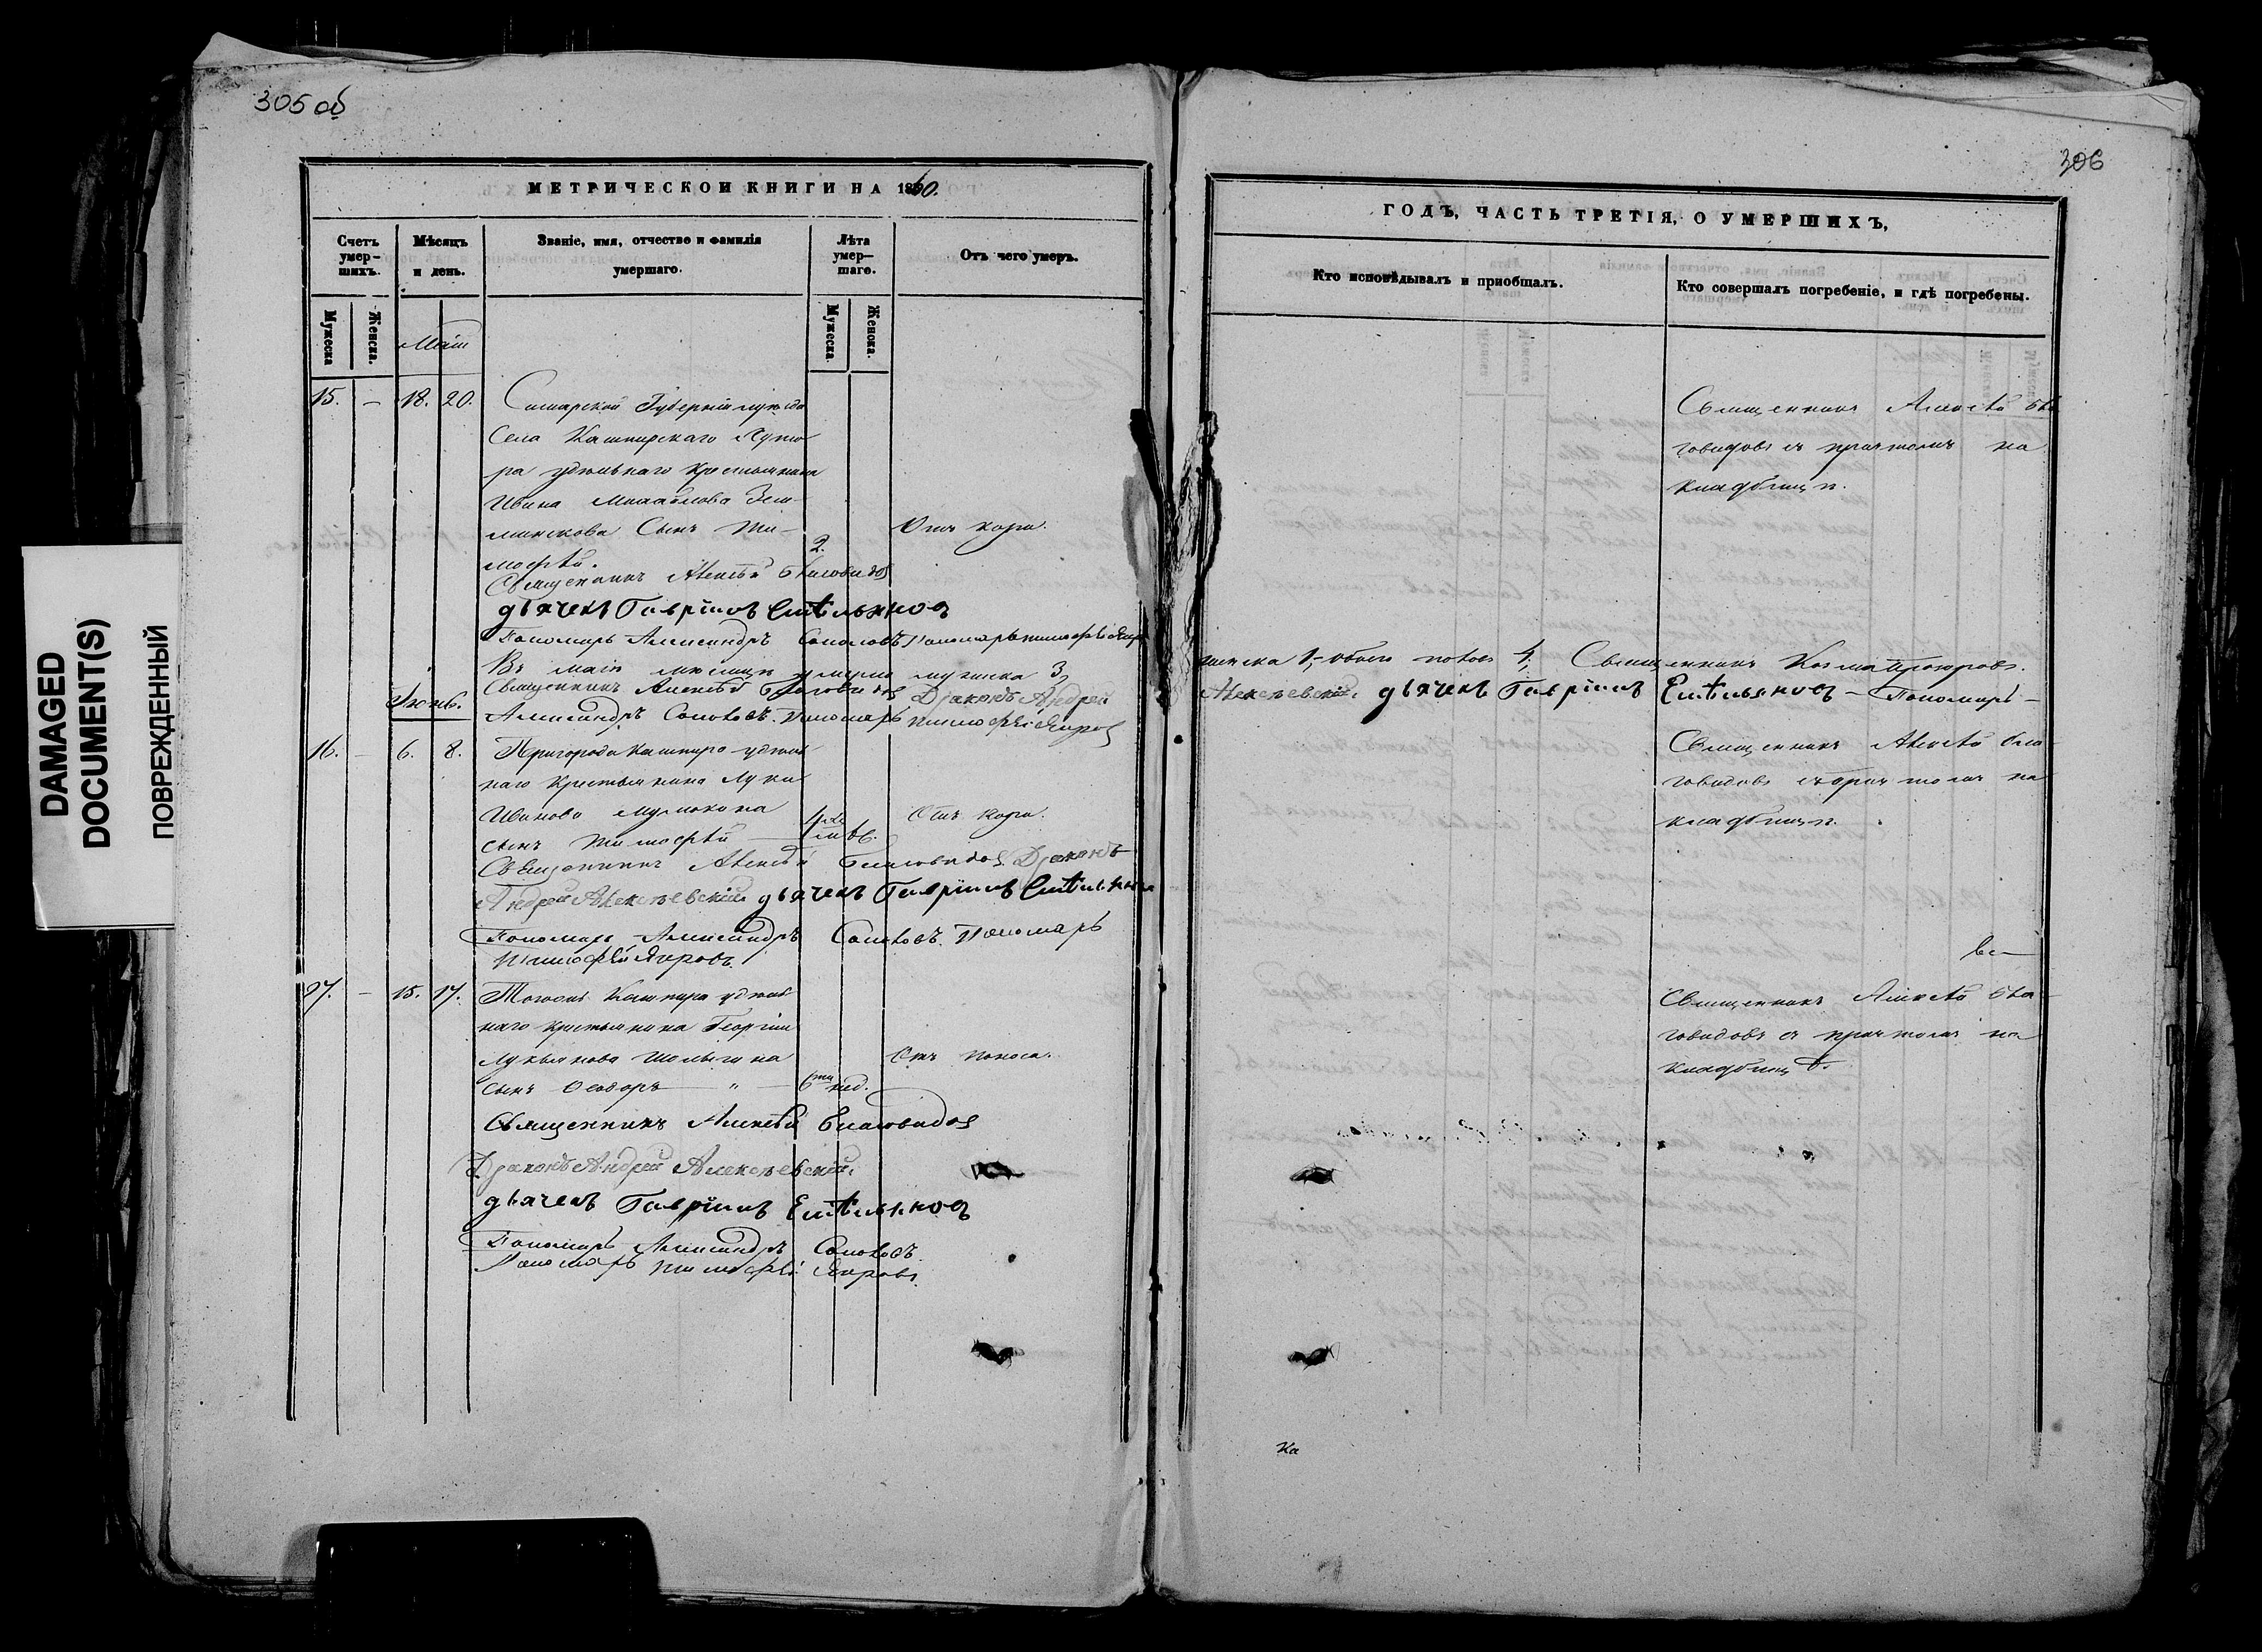 305 об
306
DAMAGED
DOCUMENT(S)
ПОВРЕЖДЕННЫЙ
МЕТРИЧЕСКОЙ КНИГИ НА 1860.
Счетъ умер-шихъ.
Мѣсяцъ и день.
Званіе, имя, отчество и фамилія умершаго.
Лѣта умер-шаго.
Отъ чего умеръ.
Мужеска
Женска.
Маій
Мужеска.
Женска.
15. — 18. 20.
Симбирской Губерніи
Села Кашпирскаго Хуто
ра удѣльнаго крестьянина
Ивана Михайлова Зем
лянскова Сынъ Ти-
мофѣй.
2.
Отъ кори.
Священникъ Алексѣй Благовидов
дьячекъ Гавріилъ Емѣльянов
Пономарь Александръ Соколовъ Пономарь Тимофѣй
Въ Маіи мѣсяцѣ умерло мужска 3,
Священникъ Алексѣй Благовидов Діаконъ Андрей
Іюнь.
Александръ Соколовъ. Пономарь Тимофѣй
16. — 6. 8.
Пригорода Кашпира удѣль
наго Крестьянина Луки
Иванова
сынъ Тимофѣй
Отъ кори.
Священникъ Алексѣй Благовидов Діаконъ
Андрей Алексѣевскій дьячекъ Гавріилъ Емѣльянов
Пономарь Александръ Соколовъ. Пономарь
Тимофѣй
17. — 15. 17.
Тогоже Кашпира удѣль
наго крестьянина Георгія
Лукьянова
сынъ Ѳеодоръ — " —
6ти нед.
Отъ поноса.
Священникъ Алексѣй Благовидов
Діаконъ Андрей Алексѣевскій
дьячекъ Гавріилъ Емѣльянов
Пономарь Александръ Соколовъ
Пономарь Тимофѣй
ГОДЪ, ЧАСТЬ ТРЕТІЯ, О УМЕРШИХЪ,
Кто исповѣдывалъ и пріобщалъ.
Кто совершалъ погребеніе, и гдѣ погребены.
Священникъ Алексѣй Бла
говидовъ съ причтомъ на
кладбищѣ.
женска 1, обоего пола 4, Священникъ Козма
Алексѣевскій дьячекъ Гавріилъ Емѣльяновъ — Пономарь —
Священникъ Алексѣй Бла
говидовъ съ причтомъ на
кладбищѣ.
Священникъ Алексѣй Бла
говидовъ съ причтомъ на
кладбищѣ.
Ка